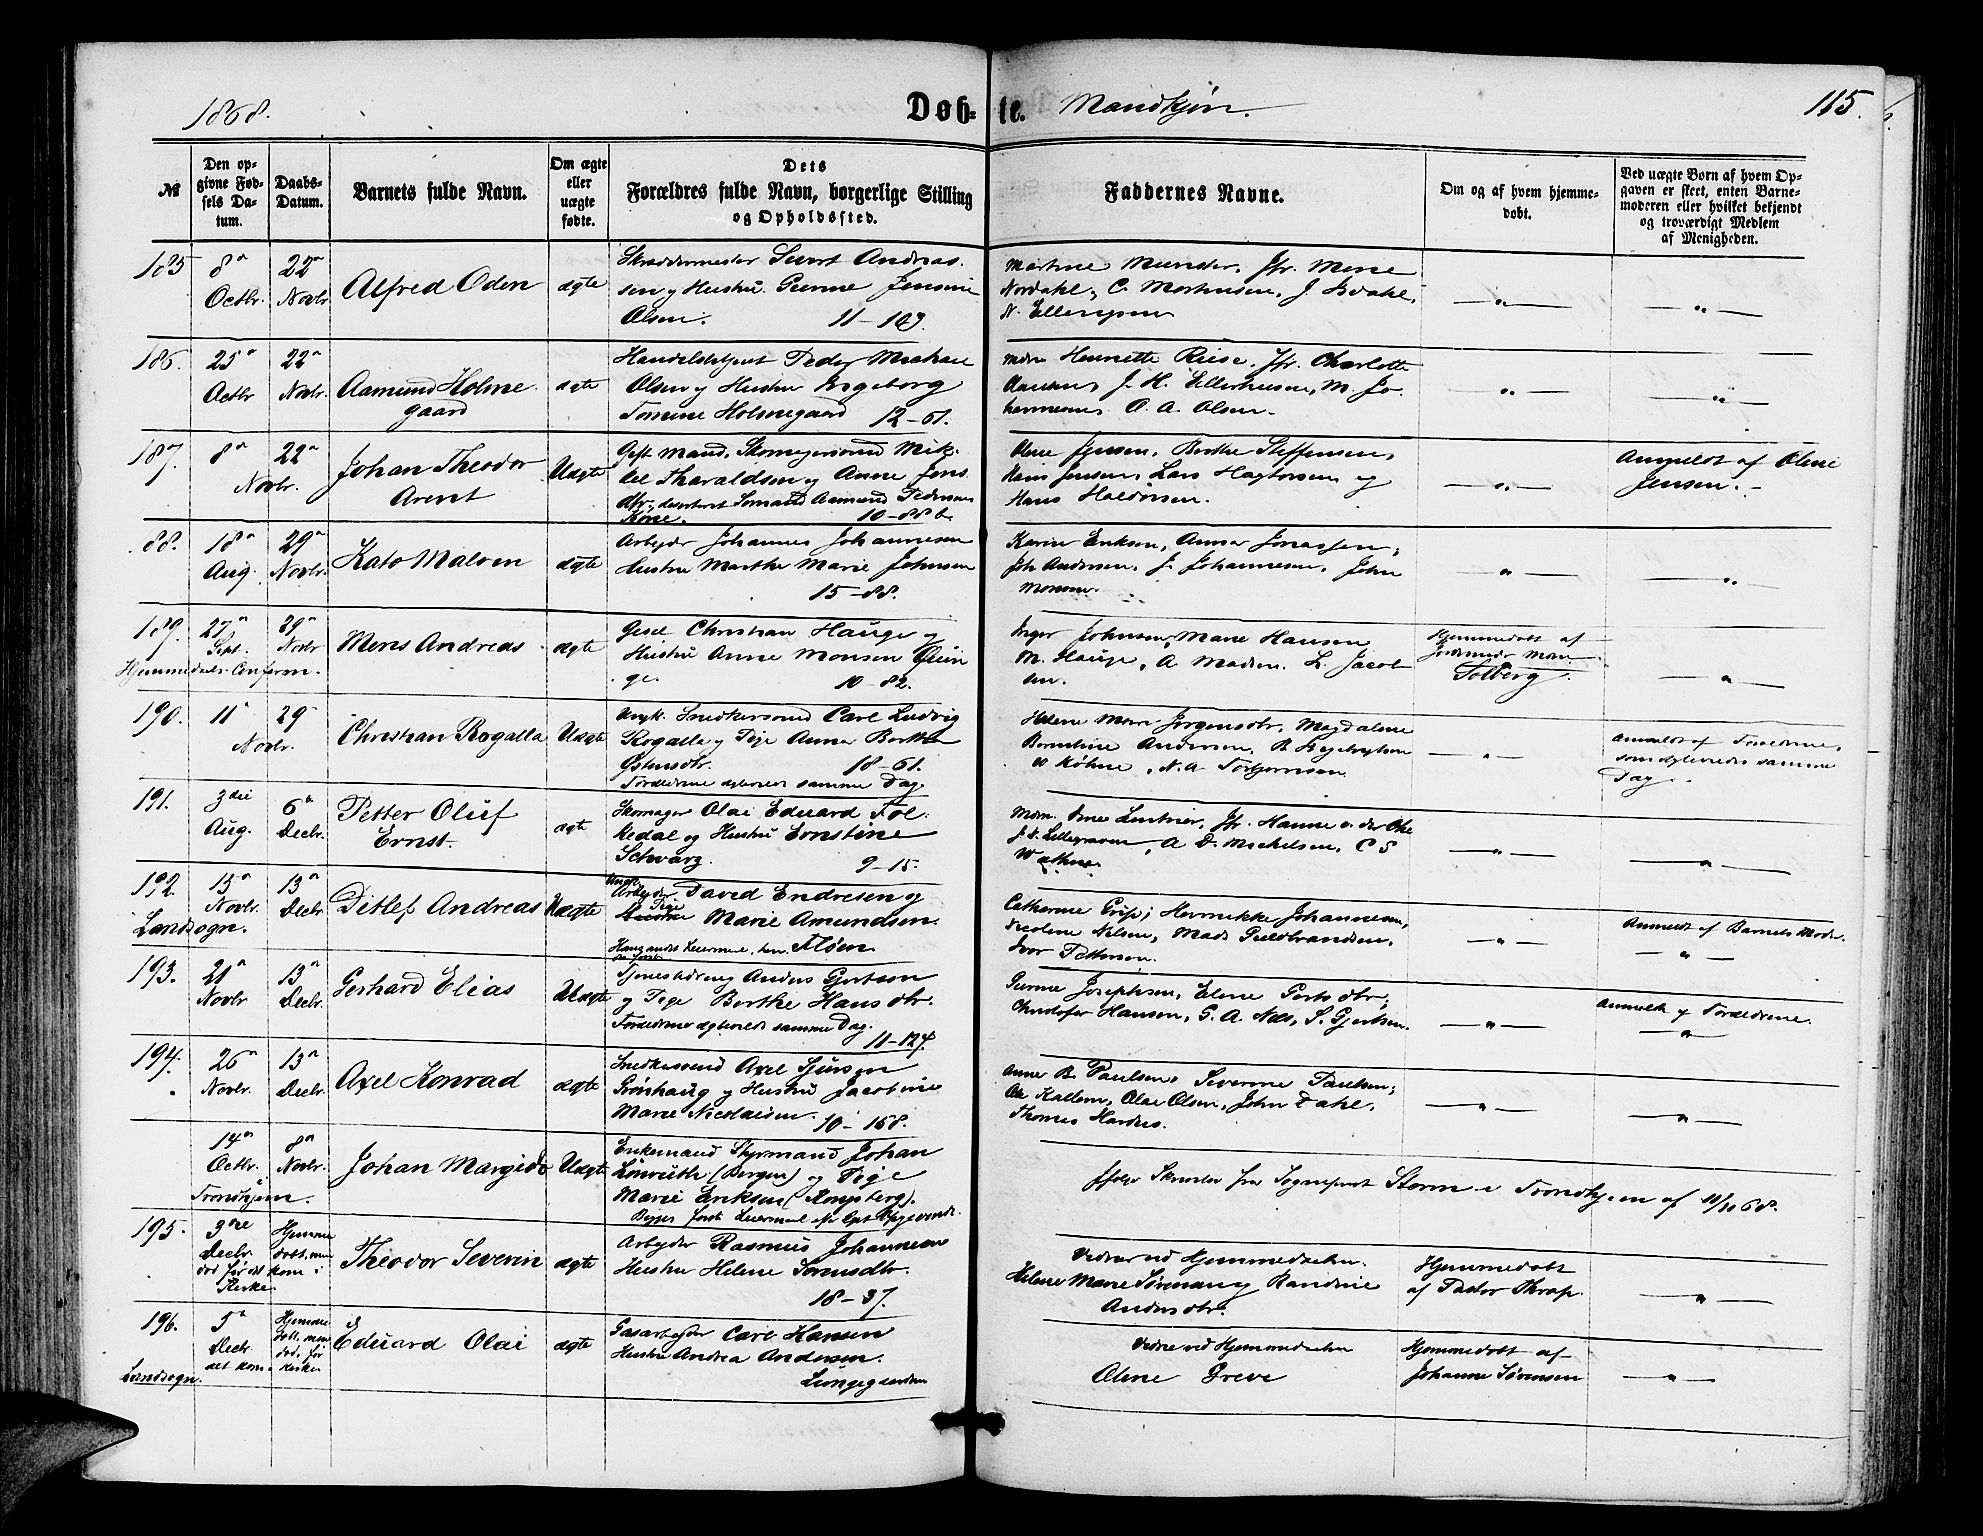 1868.
Døbte. Mandkjøn.
115.
№
Den opgivne Fødsels Datum.
Daabs-Datum.
Barnets fulde Navn.
Om ægte eller uægte fødte.
Dets Forældres fulde Navn, borgerlige Stilling og Opholdssted.
Faddernes Navne.
Om og af hvem hjemmedøbt.
Ved uægte Børn af hvem Opgaven er skeet, enten Barnemoderen eller hvilket bekjendt og troværdigt Medlem af Menigheden.
185 8de Octbr. 22de Novbr. Alfred Oden ægte
Skræddermester Sivert Andreas-
sen og Hustru Gurine Jensine
Olsen. 11-103.
Martine Munster, Jfr. Mene
Nordahl, C. Mortensen, J. Bdahl,
N. Ellingsen
186. 25de Octbr 22de Novbr. Aamund Holme
gaard ægte
Handelsbetjent Peder Michael
Olsen og Hustru Bogeborg
Tomine Holmegaard 12-61.
Mdm Henriette Riise, Jfr. Charlotte
J. H. Ellerhusen, M. Jo-
hannesen, O. A. Olsen.
187. 8de 22de Novbr. Johan Theodor
Arent Uægte
Gift Mand, Skomagersvend Mik-
kel Tharaldsen og Anne Jens-
dtr, deserteret Sømand Aamund Pedersen
10-88 b.
Oline Jensen, Berthe Steffensen,
Hans Jensen, Lars Hagtorsen og
Hans Haldorsen.
Anmeldt af Oline
Jensen.
88. 18de Aug. 29de Novbr. Kato Malvin ægte
Arbeider Johannes Johannesen
Hustru Marthe Marie Johnsen
15-88.
Karine Eriksen, Anna Jonassen,
Joh. Andersen, J. Johannesen, John
Monsen.
189. 27de Sept. 29de Novbr Mons Andreas ægte
Hjemmedaab Conferm.
Gesel Christian Hauge og
Hustru Anne Monsen
10-82.
Inger Johnsen, Marie Hansen
M. Hauge, A Madsen, L. Jacob
sen.
Hjemmedøbt af
Jordemoder Mdm
Solberg.
190. 11te 29de Novbr. Christian Rogalla Uægte
Ungk. Snedkersvend Carl Ludvig
Rogalla og Pige Anna Berthe
Østensdtr. 18-61.
Forældrene ægteviede samme Dag.
Helene Marie Jørgensdtr, Magdalene
Berntine Andersen, B.
Køhne, N. A. Torbjørnsen
Anmeldt af Forældrene,
som ægteviedes samme
Dag.
191. 3die Aug. 6te Decbr. Petter Oluf
Ernst. ægte
Skomager Olai Eduard Fol-
kedal og Hustru Ernstine
Schwarz. 9-15.
Mdm. Lintner, Jfr. Hanne v. der Ohe
A D. Michelsen, C S
Wathne.
192. 15de Novbr. 13de Decbr. Ditlef Andreas Uægte
Landsogn.
Ungk. Arbeider David Endresen og
Pige Marie Amundsen.
Hans andet Leiermaal, hen. Fløen
Cathrine Grip, Henrikke Johannesen,
Nicoline Nilsen, Mads Guldbrandsen,
Iver Pettersen.
Anmeldt af Barnets Moder.
193. 21de Novbr 13de Decbr. Gerhard Elias Uægte
Tjenestedreng Anders Gjertsen
og Pige Berthe Hansdtr.
Forældrene ægteviede samme Dag.
11-124.
Gurine Josephsen, Elene Persdtr,
Christofer Hansen, G. A. Nes, S. Gjertsen.
Anmeldt af Forældrene.
194. 26de Novbr. 13de Decbr. Axel Konrad ægte
Snedkersvend Axel Sjursen
Grønhaug og Hustru Jacobine
Marie Nicolaisen. 10-168.
Anne B. Paulsen, Severine Paulsen,
Ole Kallem, Olai Olsen, John Dahl,
Thomas Hansen.
14de Octbr. 8de Novbr. Johan Margido Uægte
Trondhjem.
Enkemand Styrmand Johan
Lønruth (Bergen) og Pige
Marie Eriksen (Kongsberg).
Begges første Leiermaal efter Opgivende.
Ifølge Skrivelse fra Sognepræst Storm i Trondhjem af 11/11 68.
195. 3die Decbr. Hjemme
døbt, men
død før det kom i
Kirke. Theodor Severin ægte
Arbeider Rasmus Johannesen
Hustru Helene Sørensdtr.
18-37.
Vidner ved Hjemmedaaben
Helene Marie Sørensen og Randine
Andersdtr.
Hjemmedøbt
af Pastor Thrap.
196. 5te Decbr. Hjemme
døbt, men
død, før
det kom i Kirke Eduard Olai ægte
Landsogn.
Gasarbeider Carl Hansen
Hustru Andrea Andersen.
Lungegaarden
Vidne ved Hjemmedaaben
Oline Greve
Hjemmedøbt af
Johanne Sørensen